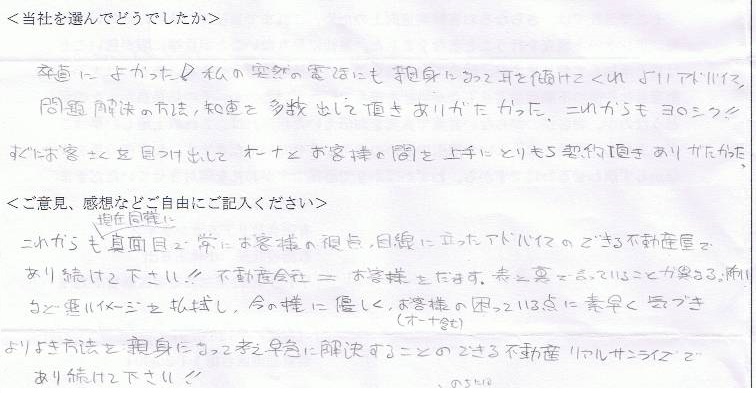 <当社を選んでどうでしたか>
率直に よかった! 私の突然の電話にも 親身になって耳を傾けてくれ よいアドバイス,
問題解決の方法, 知恵を 多数 出して頂き ありがたかった。 これからも ヨロシク!!
すぐにお客さんを見つけ出して オーナーと お客様の間を 上手にとりもち 契約頂き ありがたかった。
<ご意見、感想などご自由にご記入ください>
現在同様に
これからも 真面目で 常にお客様の視点, 目線に立ったアドバイスのできる不動産屋で
あり続けて下さい!! 不動産会社 = お客様をだます. 表と裏で言っていることが異なる,
など悪いイメージを払拭し, 今の様に優しく, お客様の困っている点に 素早く 気づき
(オーナー含む)
よりよき方法を 親身になって考え 早急に解決することのできる不動産 リアルサンライズで
あり続けて下さい!!